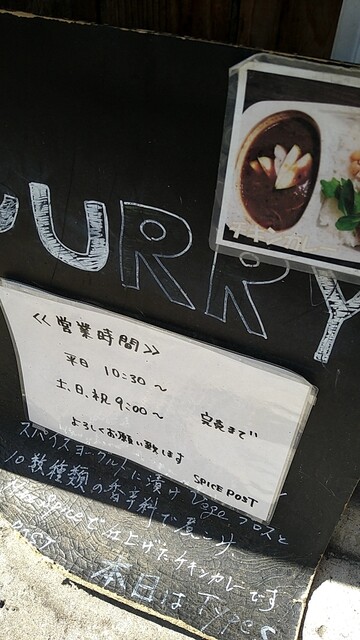 CURRY
チキンカレー
<<営業時間>>
平日 10:30～
土,日,祝 9:00～ 完売まで
よろしくお願い致します
SPICE POST
スパイスヨーグルトに漬け
10数種類の香辛料で
spiceで仕上げたチキンカレーです
POST
本日は Type